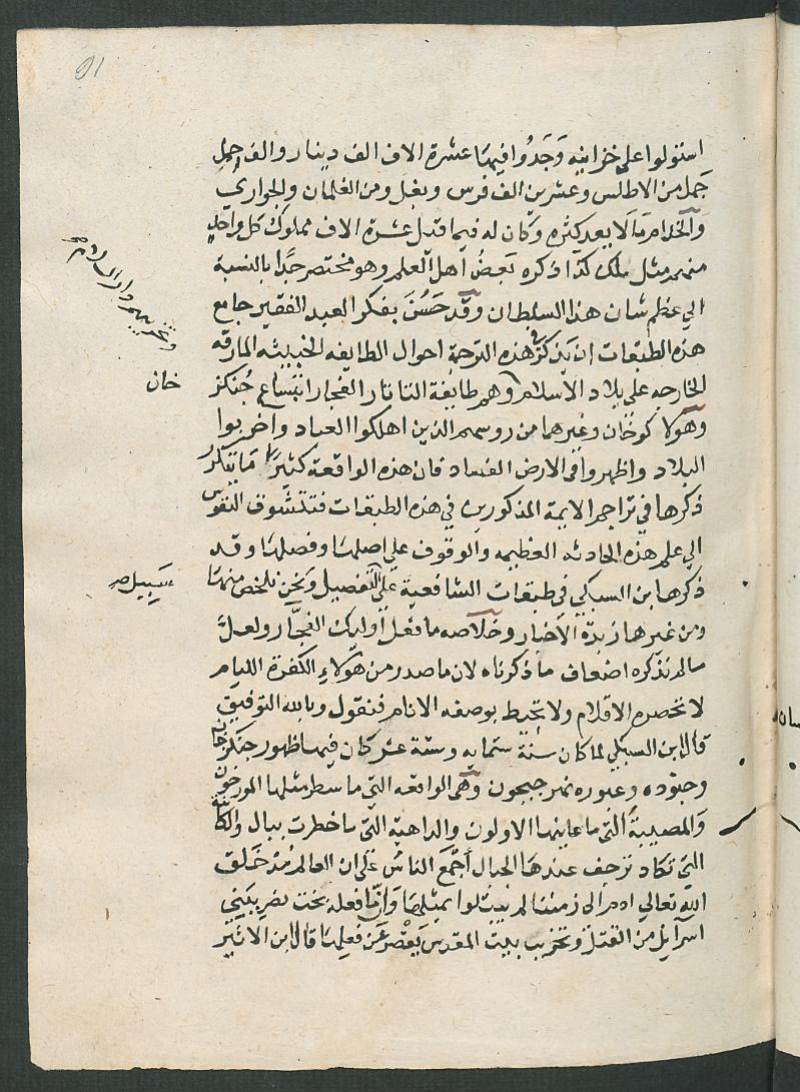 91
استولوا على خزاينه وَجَدُوا فيها عشرة الاف الف دينار والف حمل
حمل من الاطلس وعشرين الف فرس وبغل ومن الغلمان والجواري
والخدام ما لا يعد كثرة وكان له فيما قتل عشرة الاف مملوك كل واحد
منهم مثل ملك كذا ذكره بعض اهل العلم وهو مختصر جدًا بالنسبة
الي عظم شان هذا السلطان وقد حَسُنَ بفكر العبد الفقير جامع
هذه الطبقات ان يذكر في هذه الترجمة احوال الطايفه الخبيثه المارقه
الخارجه علي بلاد الاسلام وهم طايفة التاتار الفجار اتباع جُنكز
خان
وهولاكوخان وغيرهما من روسهم الذين اهلكوا العباد واخربوا
البلاد واظهروا في الارض الفساد فان هذه الواقعة كثيرًا ما يتكرر
ذكرها في تراجم الايمة المذكورين في هذه الطبقات فتتشوق النفوس
الي علم هذه الحادثه العظيمه والوقوف علي اصلها وفصلها وقد
ذكرها ابن السبكي في طبقات الشافعية علي التفصيل ونحن نلخص منها
سبيل صح
ومن غيرها زبدة الاخبار وخلاصه ما فعل اوليك الفجّار ولعلّ
ما لم نذكره اضعاف ما ذكرناه لان ما صدر من هولاء الكفرة الليام
لا تحصره الاقلام ولا يحيط بوصفه الانام فنقول وبالله التوفيق
قال ابن السبكي لما كان سنة ستمايه وستة عشر كان فيها ظهور جنكزخان
وجنوده وعبوره نهر جيحون وهي الواقعه التي ما سطر مثلها المورخون
والمصيبة التي ما عاينها الاولون والداهية التي ما خطرت ببال والكاينة
التي تكاد ترجف عندها الجبال أجْمَعَ الناسُ علي ان العالم مُذ خَلَق
الله تعالي ادم الي زمننا لم يبتلوا بمثلها وَانّ ما فعله بخت نصر ببني
اسرآيل من القتل وتخريب بيت المقدس يَقْصُر عَن فعلها قال ابن الاثير